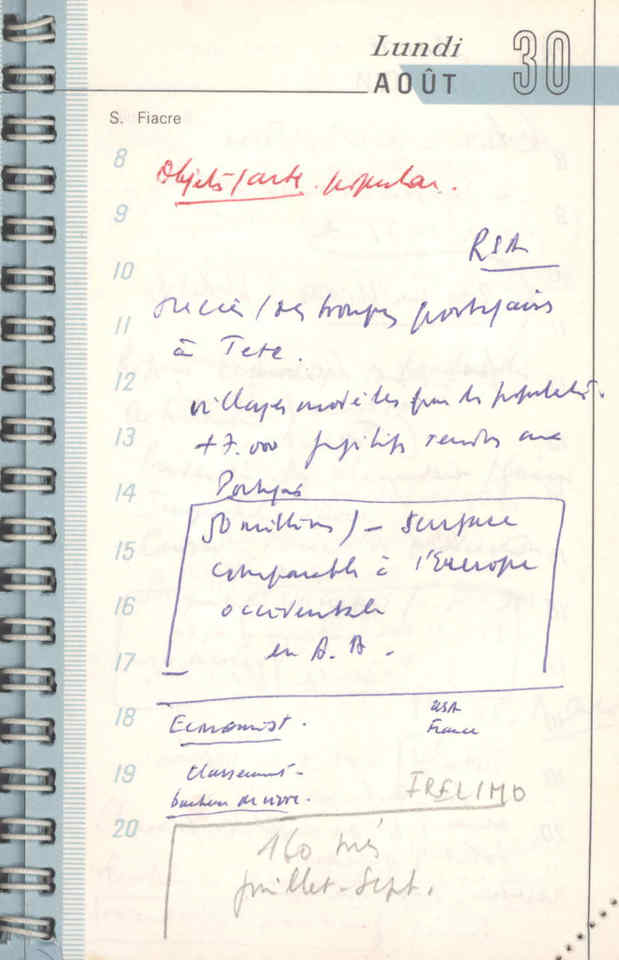 Lundi 30
AOÛT
S. Fiacre
8
Objets / arte popular.
9
RSA
10
succès / des troupes portugaises
11
à Tete.
12
villages modèles pour les populat.
13
+ 7.000 fugitifs rendus aux
14
Portugais
50 millions) – Surface
15
comparable à l'Europe
16
occidentale
17
en A. A.
18
Economist. USA
France
19
Classement
bonheur de vivre. FRELIMO
20
160 tués
juillet-Sept.